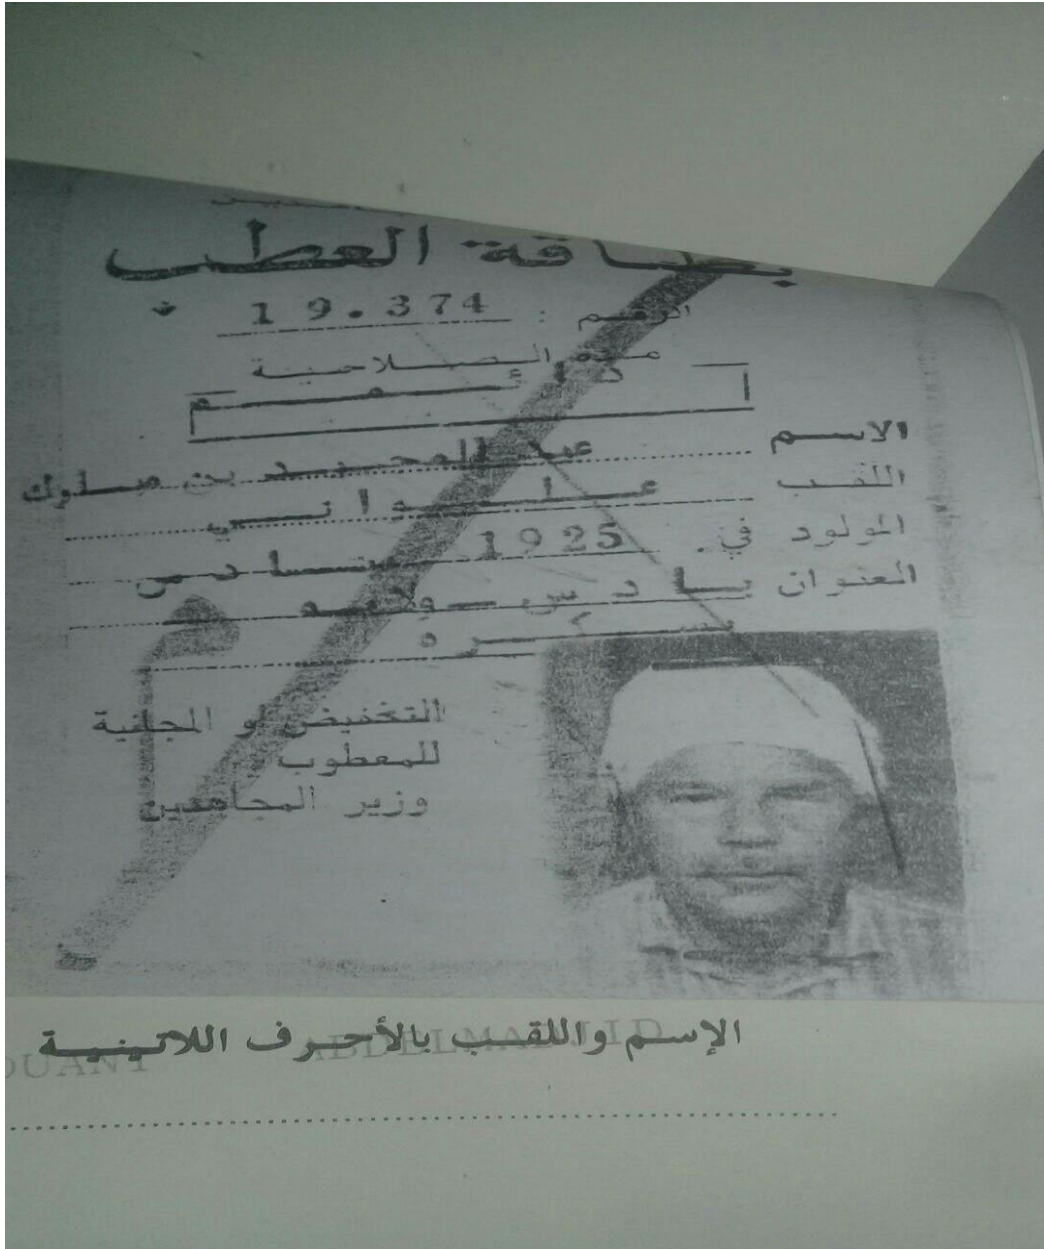 بطاقة العطب
الرقم : 19.374
مدة الصلاحية
دائم
الاسم عبد المجيد بن مبلوك
اللقب علواني
المولود في . 1925 ببادس
العنوان بادس ولاية
بسكرة
التخفيض او المجانية
للمعطوب
وزير المجاهدين
الإسم واللقب بالأحرف اللاتينية
OUANI ABDELMADJID